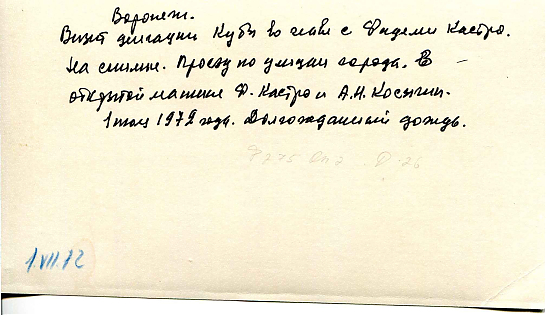 Воронеж.
Визит делегации Кубы во главе с Фиделем Кастро.
На снимке. Проезд по улицам города. В
открытой машине Ф. Кастро и А.Н. Косыгин.
1 июл 1972 года. Долгожданный дождь.
1.VII.72